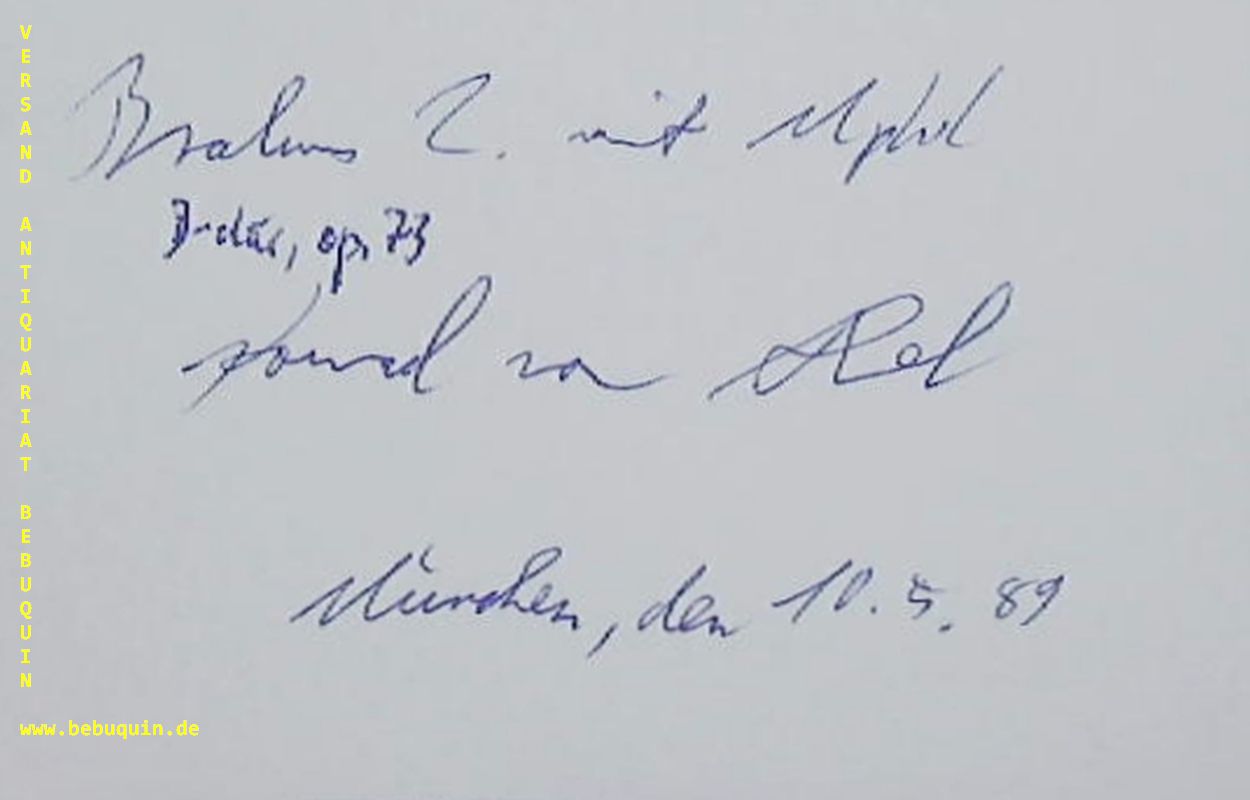 VERSAND ANTIQUARIAT BEBUQUIN
Brahms 2. mit Mphil
D-dur, op. 73
München, den 10.5.89
www.bebuquin.de